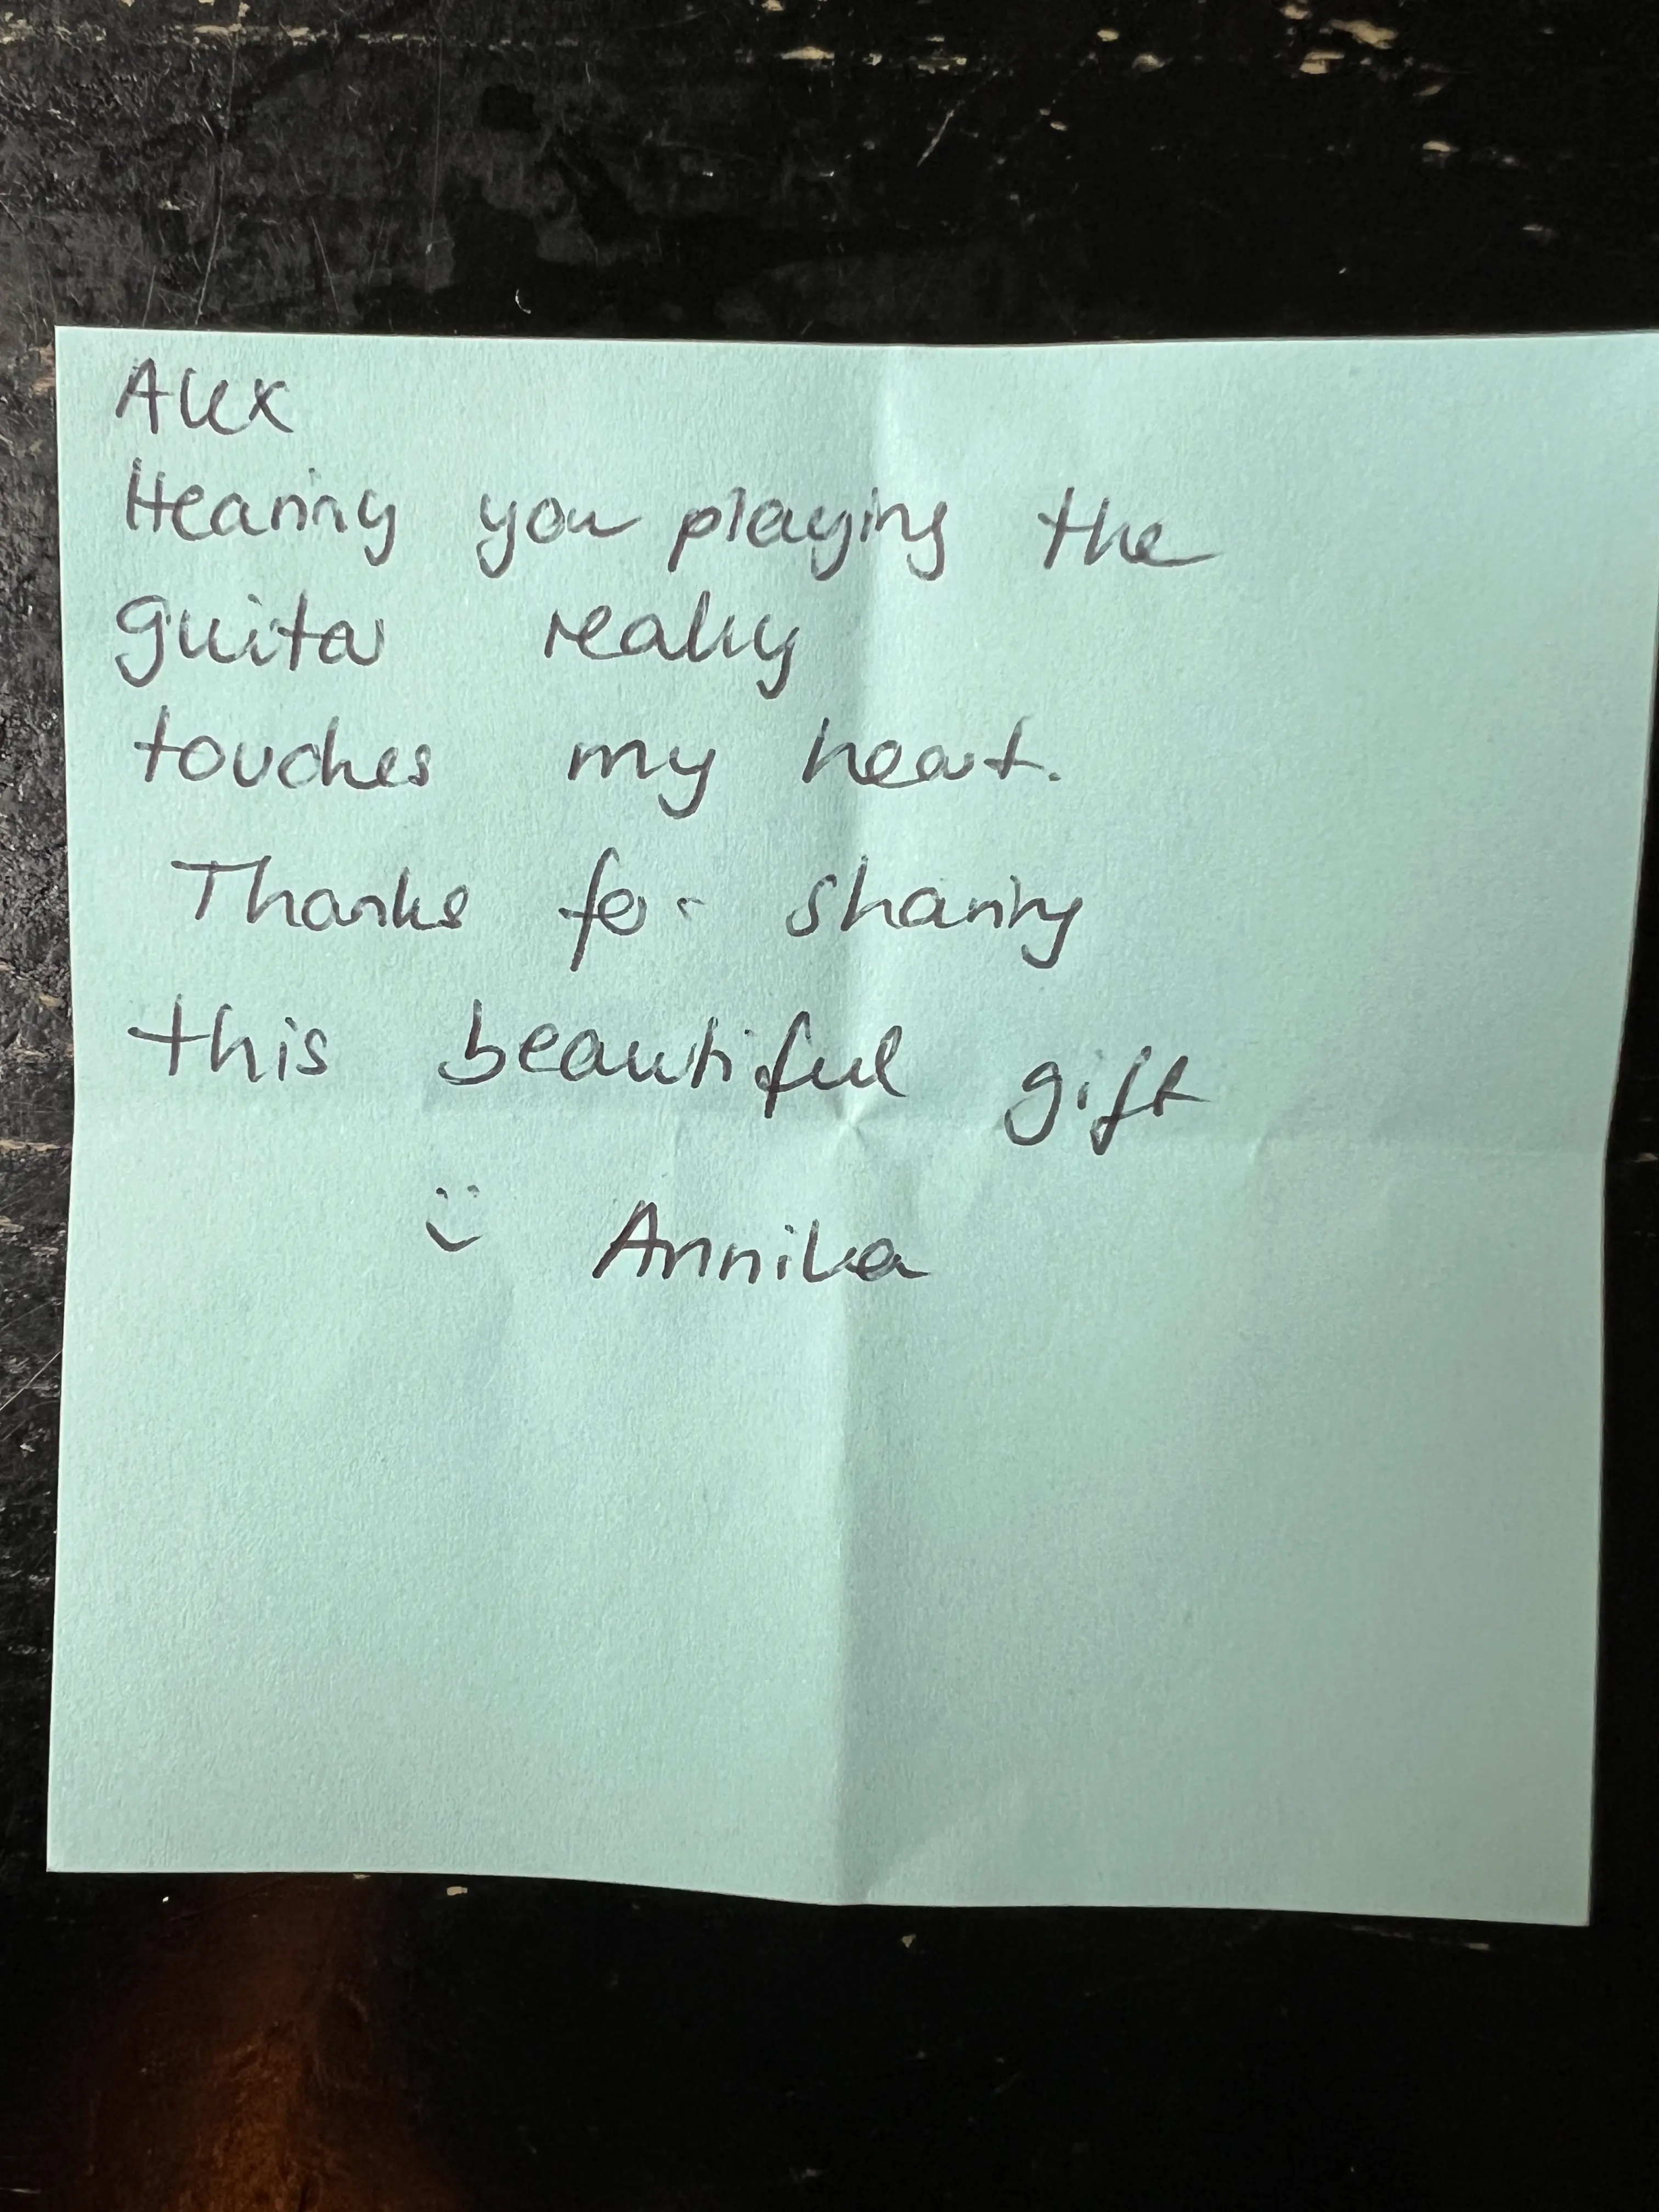 Alex
Hearing you playing the
guitar really
touches my heart.
Thanks for sharing
this beautiful gift
:) Annika